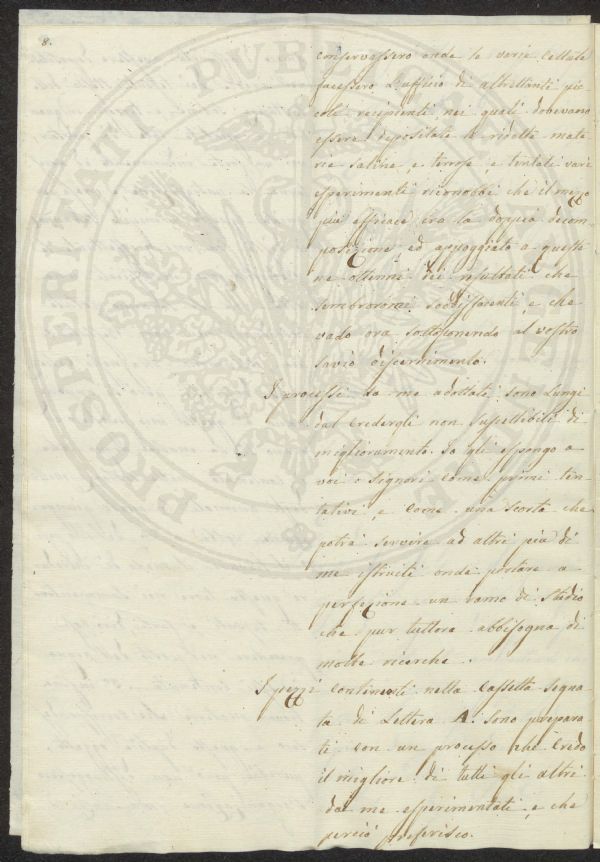 8.
conservassero onde le varie cellule
facessero l'ufficio di altrettanti pic
coli recipienti nei quali dovevano
essere depositate le ridette mate
rie saline, e terrose, e tentati vari
esperimenti riconobbi che il mezzo
più efficace era la doppia decom-
posizione ed appoggiato a queste
ne ottenni dei risultati che
sembraronmi soddisfacenti, e che
vado ora sottoponendo al vostro
savio discernimento.
I processi da me adottati sono lungi
dal credergli non suscettibili di
miglioramento. Io gli espongo a
voi o Signori come primi ten
tativi, e come una scorta che
potrà servire ad altri più di
me istruiti onde portare a
perfezione un ramo di Studio
che pur tuttora abbisogna di
molte ricerche.
I pezzi contenenti nella Cassetta segna
ta di Lettera A. sono prepara
ti con un processo che credo
il migliore di tutti gli altri
da me esperimentati, e che
perciò preferisco.
PROSPERITATI PUBLICAE